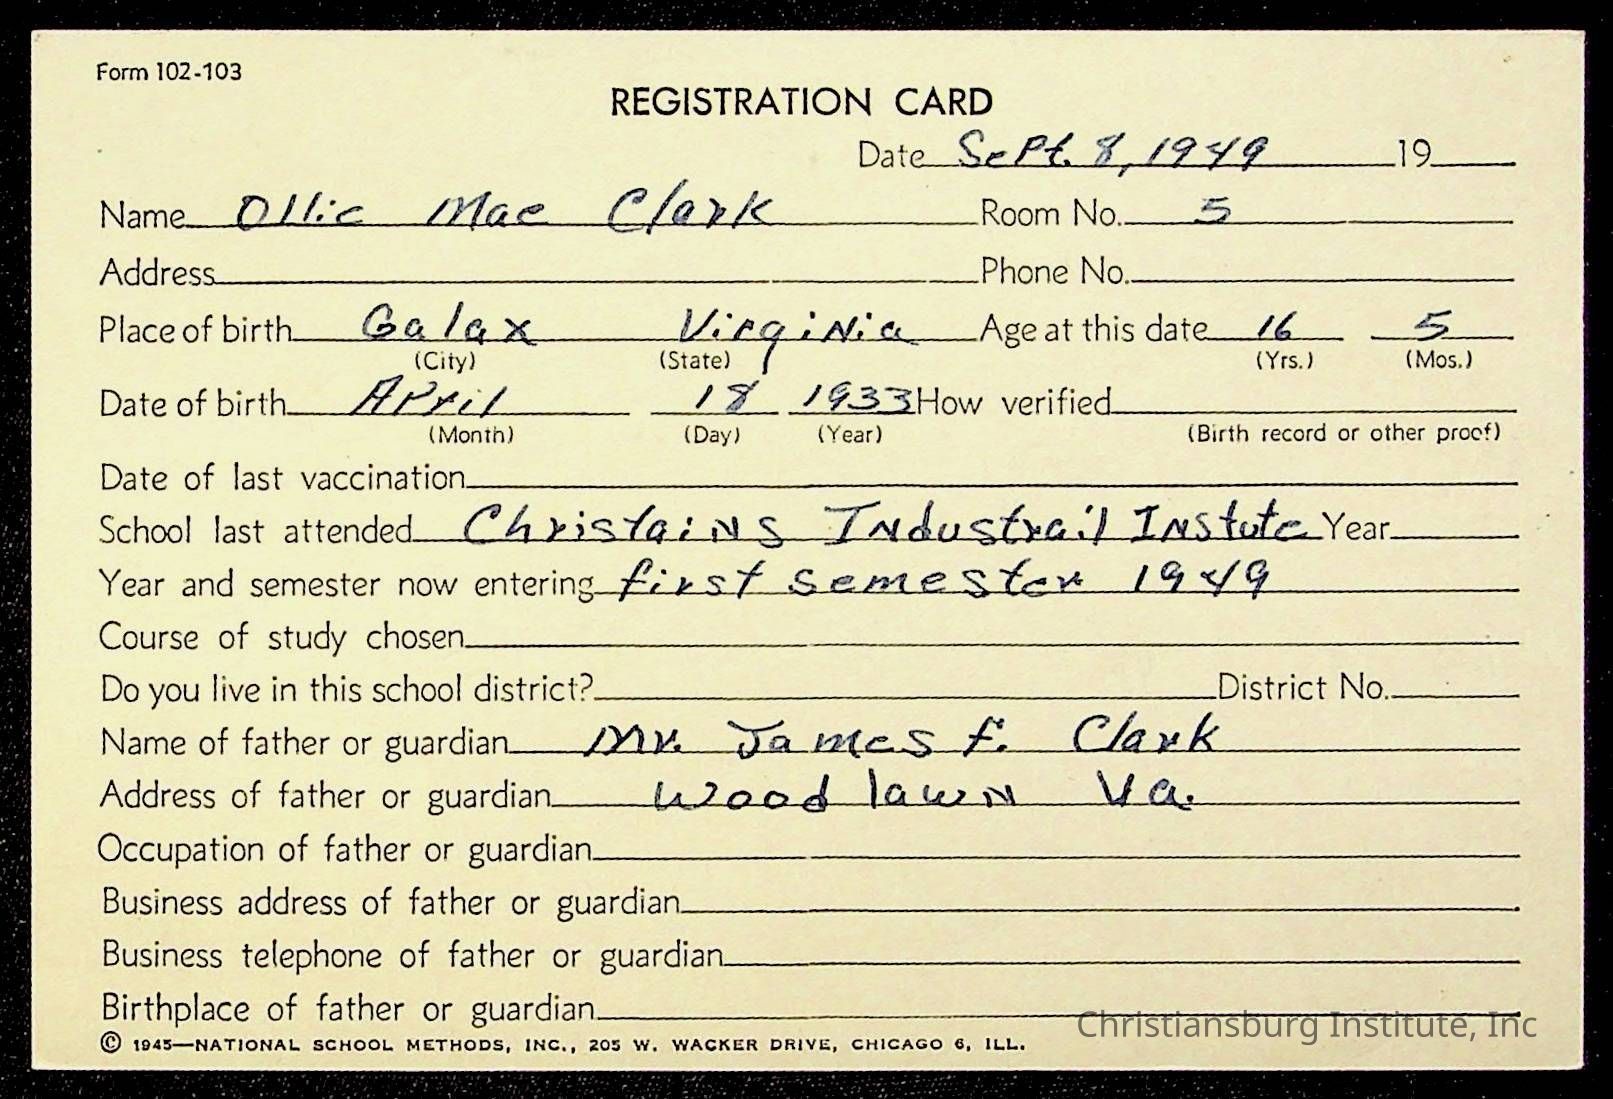 Form 102-103
REGISTRATION CARD
Date Sept. 8, 1949 19
Name Ollie Mae Clark Room No. 5
Address Phone No.
Place of birth Galax Virginia Age at this date 16 5
(City) (State) (Yrs.) (Mos.)
Date of birth April 18 1933 How verified
(Month) (Day) (Year) (Birth record or other proof)
Date of last vaccination
School last attended Christains Industrail Instute Year
Year and semester now entering first semester 1949
Course of study chosen
Do you live in this school district? District No.
Name of father or guardian Mr. James F. Clark
Address of father or guardian Wood lawn Va.
Occupation of father or guardian
Business address of father or guardian
Business telephone of father or guardian
Birthplace of father or guardian
Christiansburg Institute, Inc
© 1945—NATIONAL SCHOOL METHODS, INC., 205 W. WACKER DRIVE, CHICAGO 6, ILL.